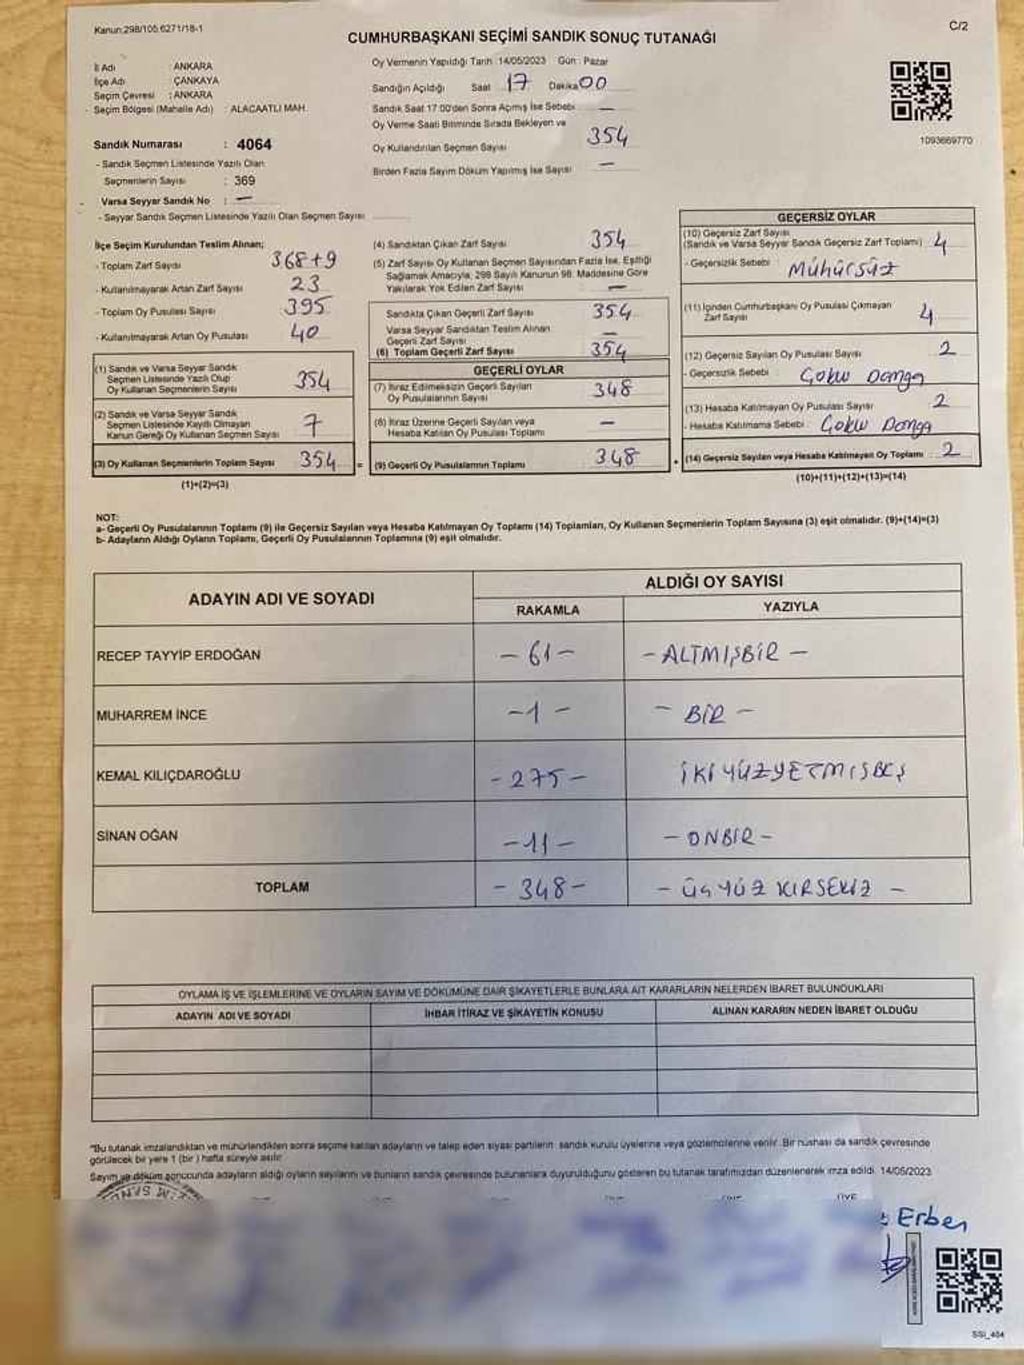 Kanun:298/105.6271/18-1
C/2
CUMHURBAŞKANI SEÇİMİ SANDIK SONUÇ TUTANAĞI
İl Adı : ANKARA
İlçe Adı : ÇANKAYA
Seçim Çevresi : ANKARA
Seçim Bölgesi (Mahalle Adı) : ALACAATLI MAH.
Sandık Numarası : 4064
- Sandık Seçmen Listesinde Yazılı Olan
Seçmenlerin Sayısı : 369
Varsa Seyyar Sandık No : —
- Seyyar Sandık Seçmen Listesinde Yazılı Olan Seçmen Sayısı
Oy Vermenin Yapıldığı Tarih :14/05/2023 Gün : Pazar
Sandığın Açıldığı Saat 17 Dakika 00
Sandık Saat 17:00'den Sonra Açımış İse Sebebi —
Oy Verme Saati Bitiminde Sırada Bekleyen ve
Oy Kullandırılan Seçmen Sayısı 354
Birden Fazla Sayım Döküm Yapılmış İse Sayısı —
1093669770
İlçe Seçim Kurulundan Teslim Alınan;
- Toplam Zarf Sayısı 368+9
- Kullanılmayarak Artan Zarf Sayısı 23
- Toplam Oy Pusulası Sayısı 395
- Kullanılmayarak Artan Oy Pusulası 40
(1) Sandık ve Varsa Seyyar Sandık
Seçmen Listesinde Yazılı Olup
Oy Kullanan Seçmenlerin Sayısı 354
(2) Sandık ve Varsa Seyyar Sandık
Seçmen Listesinde Kayıtlı Olmayan
Kanun Gereği Oy Kullanan Seçmen Sayısı 7
(3) Oy Kullanan Seçmenlerin Toplam Sayısı 354 =
(1)+(2)=(3)
(4) Sandıktan Çıkan Zarf Sayısı 354
(5) Zarf Sayısı Oy Kullanan Seçmen Sayısından Fazla İse, Eşitliği
Sağlamak Amacıyla; 298 Sayılı Kanunun 98. Maddesine Göre
Yakılarak Yok Edilen Zarf Sayısı —
Sandıkta Çıkan Geçerli Zarf Sayısı 354
Varsa Seyyar Sandıktan Teslim Alınan
Geçerli Zarf Sayısı —
(6) Toplam Geçerli Zarf Sayısı 354
GEÇERLİ OYLAR
(7) İtiraz Edilmeksizin Geçerli Sayılan
Oy Pusulalarının Sayısı 348
(8) İtiraz Üzerine Geçerli Sayılan veya
Hesaba Katılan Oy Pusulası Toplamı —
(9) Geçerli Oy Pusulalarının Toplamı 348 +
GEÇERSİZ OYLAR
(10) Geçersiz Zarf Sayısı
(Sandık ve Varsa Seyyar Sandık Geçersiz Zarf Toplamı) 4
- Geçersizlik Sebebi : Mühürsüz
(11) İçinden Cumhurbaşkanı Oy Pusulası Çıkmayan
Zarf Sayısı 4
(12) Geçersiz Sayılan Oy Pusulası Sayısı 2
- Geçersizlik Sebebi :
(13) Hesaba Katılmayan Oy Pusulası Sayısı 2
- Hesaba Katılmama Sebebi :
(14) Geçersiz Sayılan veya Hesaba Katılmayan Oy Toplamı 2
(10)+(11)+(12)+(13)=(14)
NOT:
a- Geçerli Oy Pusulalarının Toplamı (9) ile Geçersiz Sayılan veya Hesaba Katılmayan Oy Toplamı (14) Toplamları, Oy Kullanan Seçmenlerin Toplam Sayısına (3) eşit olmalıdır. (9)+(14)=(3)
b- Adayların Aldığı Oyların Toplamı, Geçerli Oy Pusulalarının Toplamına (9) eşit olmalıdır.
ADAYIN ADI VE SOYADI
ALDIĞI OY SAYISI
RAKAMLA YAZIYLA
RECEP TAYYİP ERDOĞAN - 61 - - ALTMIŞBİR -
MUHARREM İNCE - 1 - - BİR -
KEMAL KILIÇDAROĞLU - 275 - İKİYÜZYETMİŞBEŞ
SİNAN OĞAN - 11 - - ONBİR -
TOPLAM - 348 - - ÜÇYÜZ KIRSEKİZ -
OYLAMA İŞ VE İŞLEMLERİNE VE OYLARIN SAYIM VE DÖKÜMÜNE DAİR ŞİKAYETLERLE BUNLARA AİT KARARLARIN NELERDEN İBARET BULUNDUKLARI
ADAYIN ADI VE SOYADI İHBAR İTİRAZ VE ŞİKAYETİN KONUSU ALINAN KARARIN NEDEN İBARET OLDUĞU
"Bu tutanak imzalandıktan ve mühürlendikten sonra seçime katılan adayların ve talep eden siyasi partilerin sandık kurulu üyelerine veya gözlemcilerine verilir. Bir nüshası da sandık çevresinde
görülecek bir yere 1 (bir ) hafta süreyle asılır.
Sayım ve döküm sonucunda adayların aldığı oyların sayılarını ve bunların sandık çevresinde bulunanlara duyurulduğunu gösteren bu tutanak tarafımızdan düzenlenerek imza edildi. 14/05/2023
ÜYE
Erben
SSİ_404